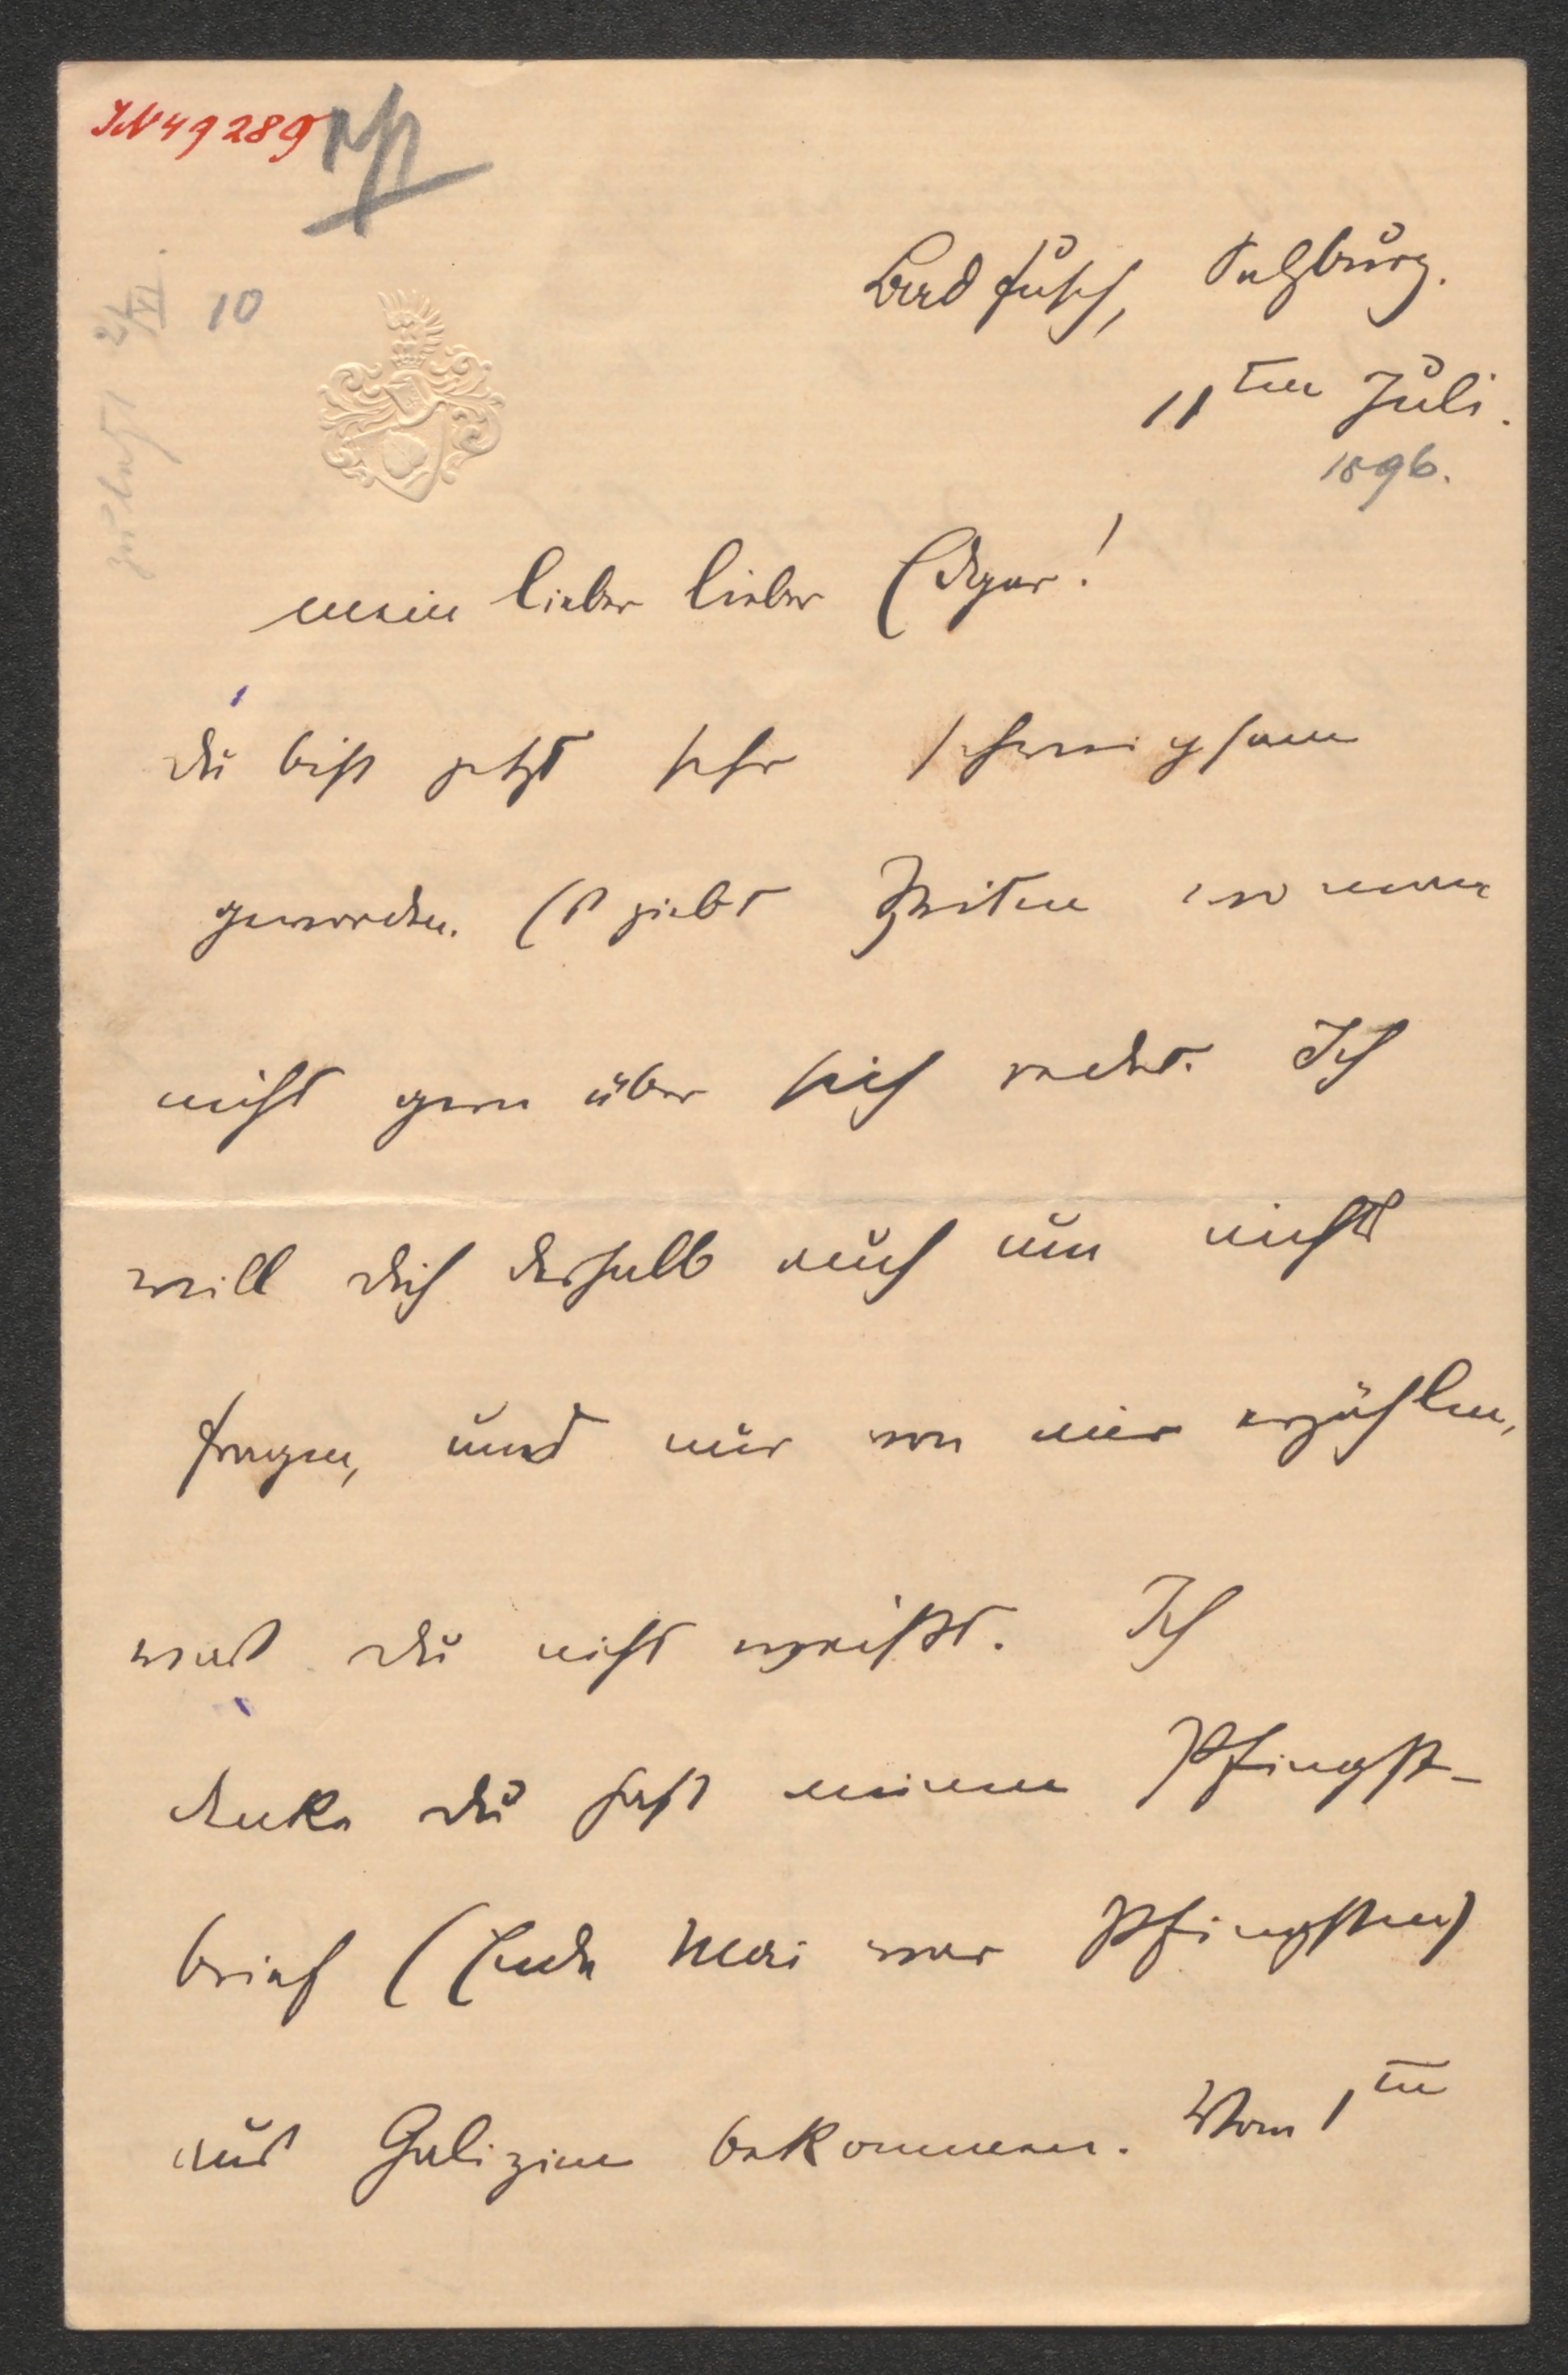 IN 49289
Bad Fusch, Salzburg.
10
11ten Juli.
1896.
mein lieber lieber Edgar!
du bist jetzt sehr schweigsam
geworden. Es giebt Zeiten wo man
nicht gern über sich redet. Ich
will dich deshalb auch um nichts
fragen, und nur von mir erzählen,
was du nicht weißt. Ich
denke du hast meinen Pfingst-
brief (Ende Mai war Pfingsten)
aus Galizien bekommen. Vom 1ten